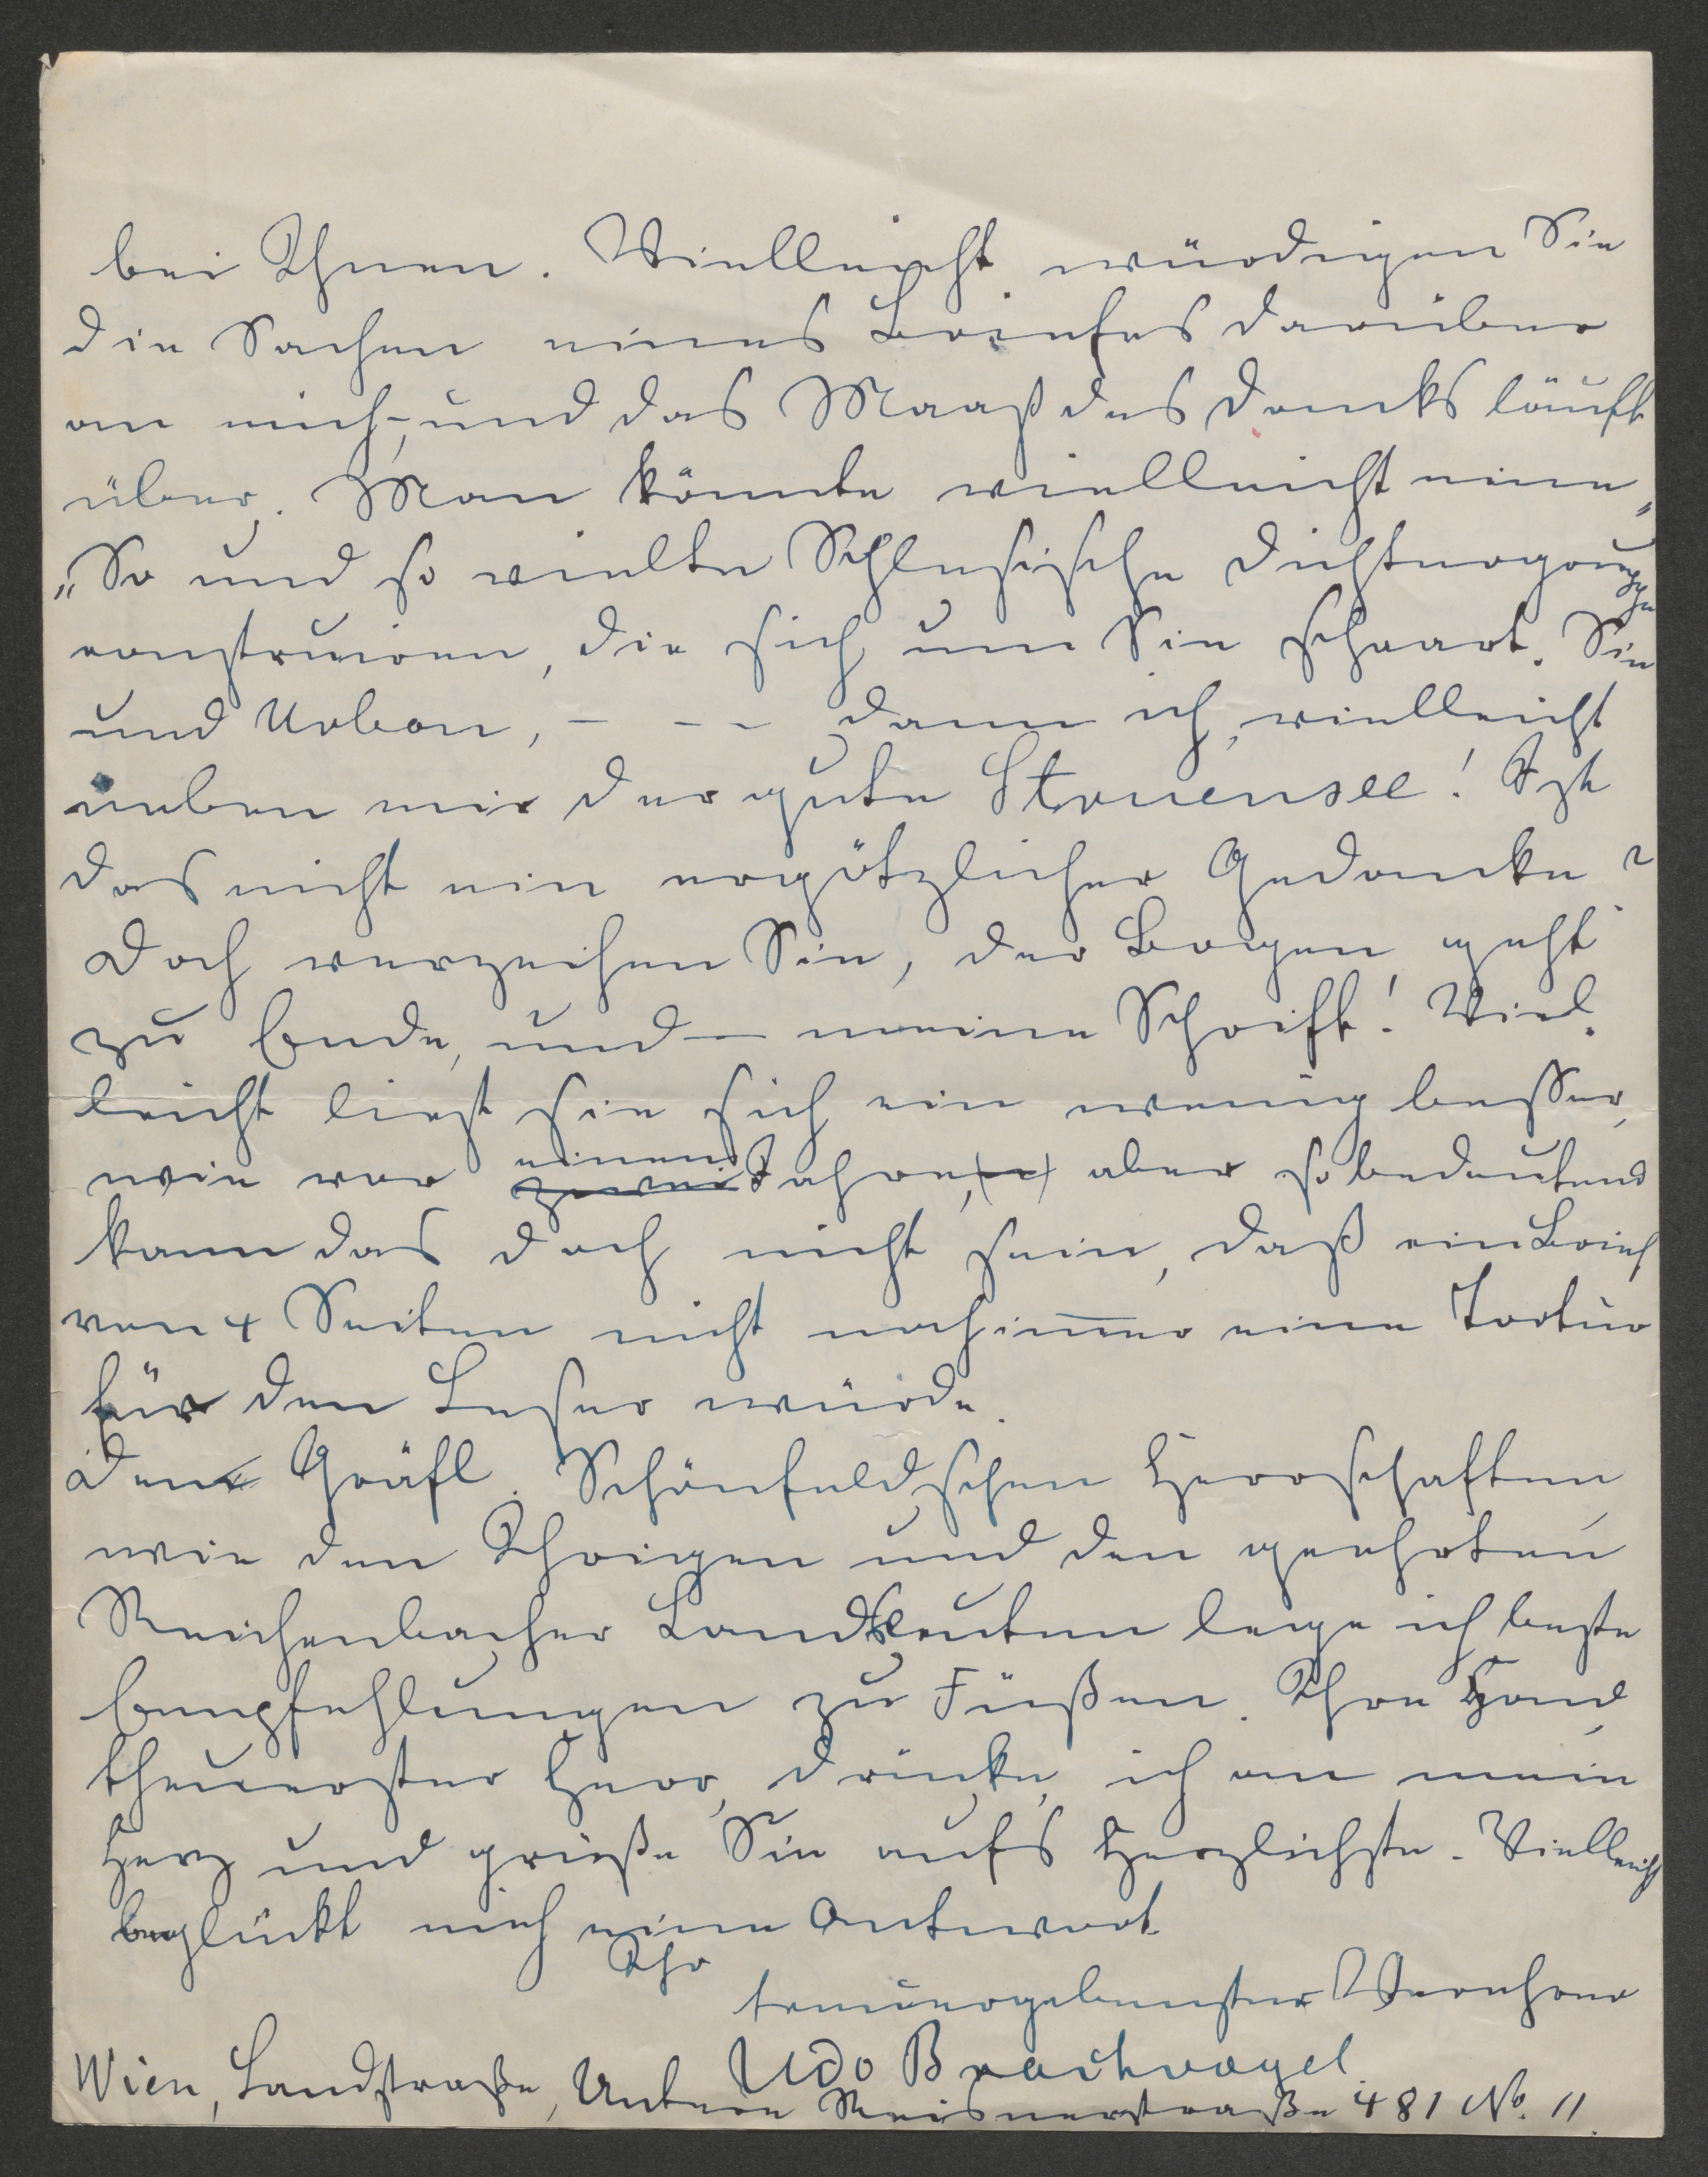 bei Ihnen. Vielleicht würdigen Sie
die Sachen eines Briefes darüber
an mich, und das Maaß des Dancks läuft
über. Man könnte vielleicht eine „
„So und so vielte Schlesische Dichtergruppe
construiren, die sich um Sie schaart. Sie
und Urban, – – – dann ich, vielleicht
neben mir der gute Struensee! Ist
das nicht ein ergötzlicher Gedancke?
Doch verzeihen Sie, der Bogen geht
zu Ende, und – meine Schrift! Viel-
leicht liest sie sich ein wenig besser,
wie vor einem Jahre, aber so bedeutend
kann das doch nicht sein, daß ein Brief
von 4 Seiten nicht noch immer eine Tortur
für den Leser würde.
Den Gräfl. Schönfeldschen Herrschaften
wie den Ihrigen und den geehrten
Reichenbacher Landsleuten lege ich beste
Empfehlungen zu Füßen. Ihre Hand
theuerster Herr, drücke ich an mein
Herz und grüße Sie aufs Herzlichste. Vielleicht
beglückt mich eine Antwort.
Ihr
treuergebenster Verehrer
Udo Brachvogel
Wien, Landstraße, Untere Reisnerstraße 481 No. 11.